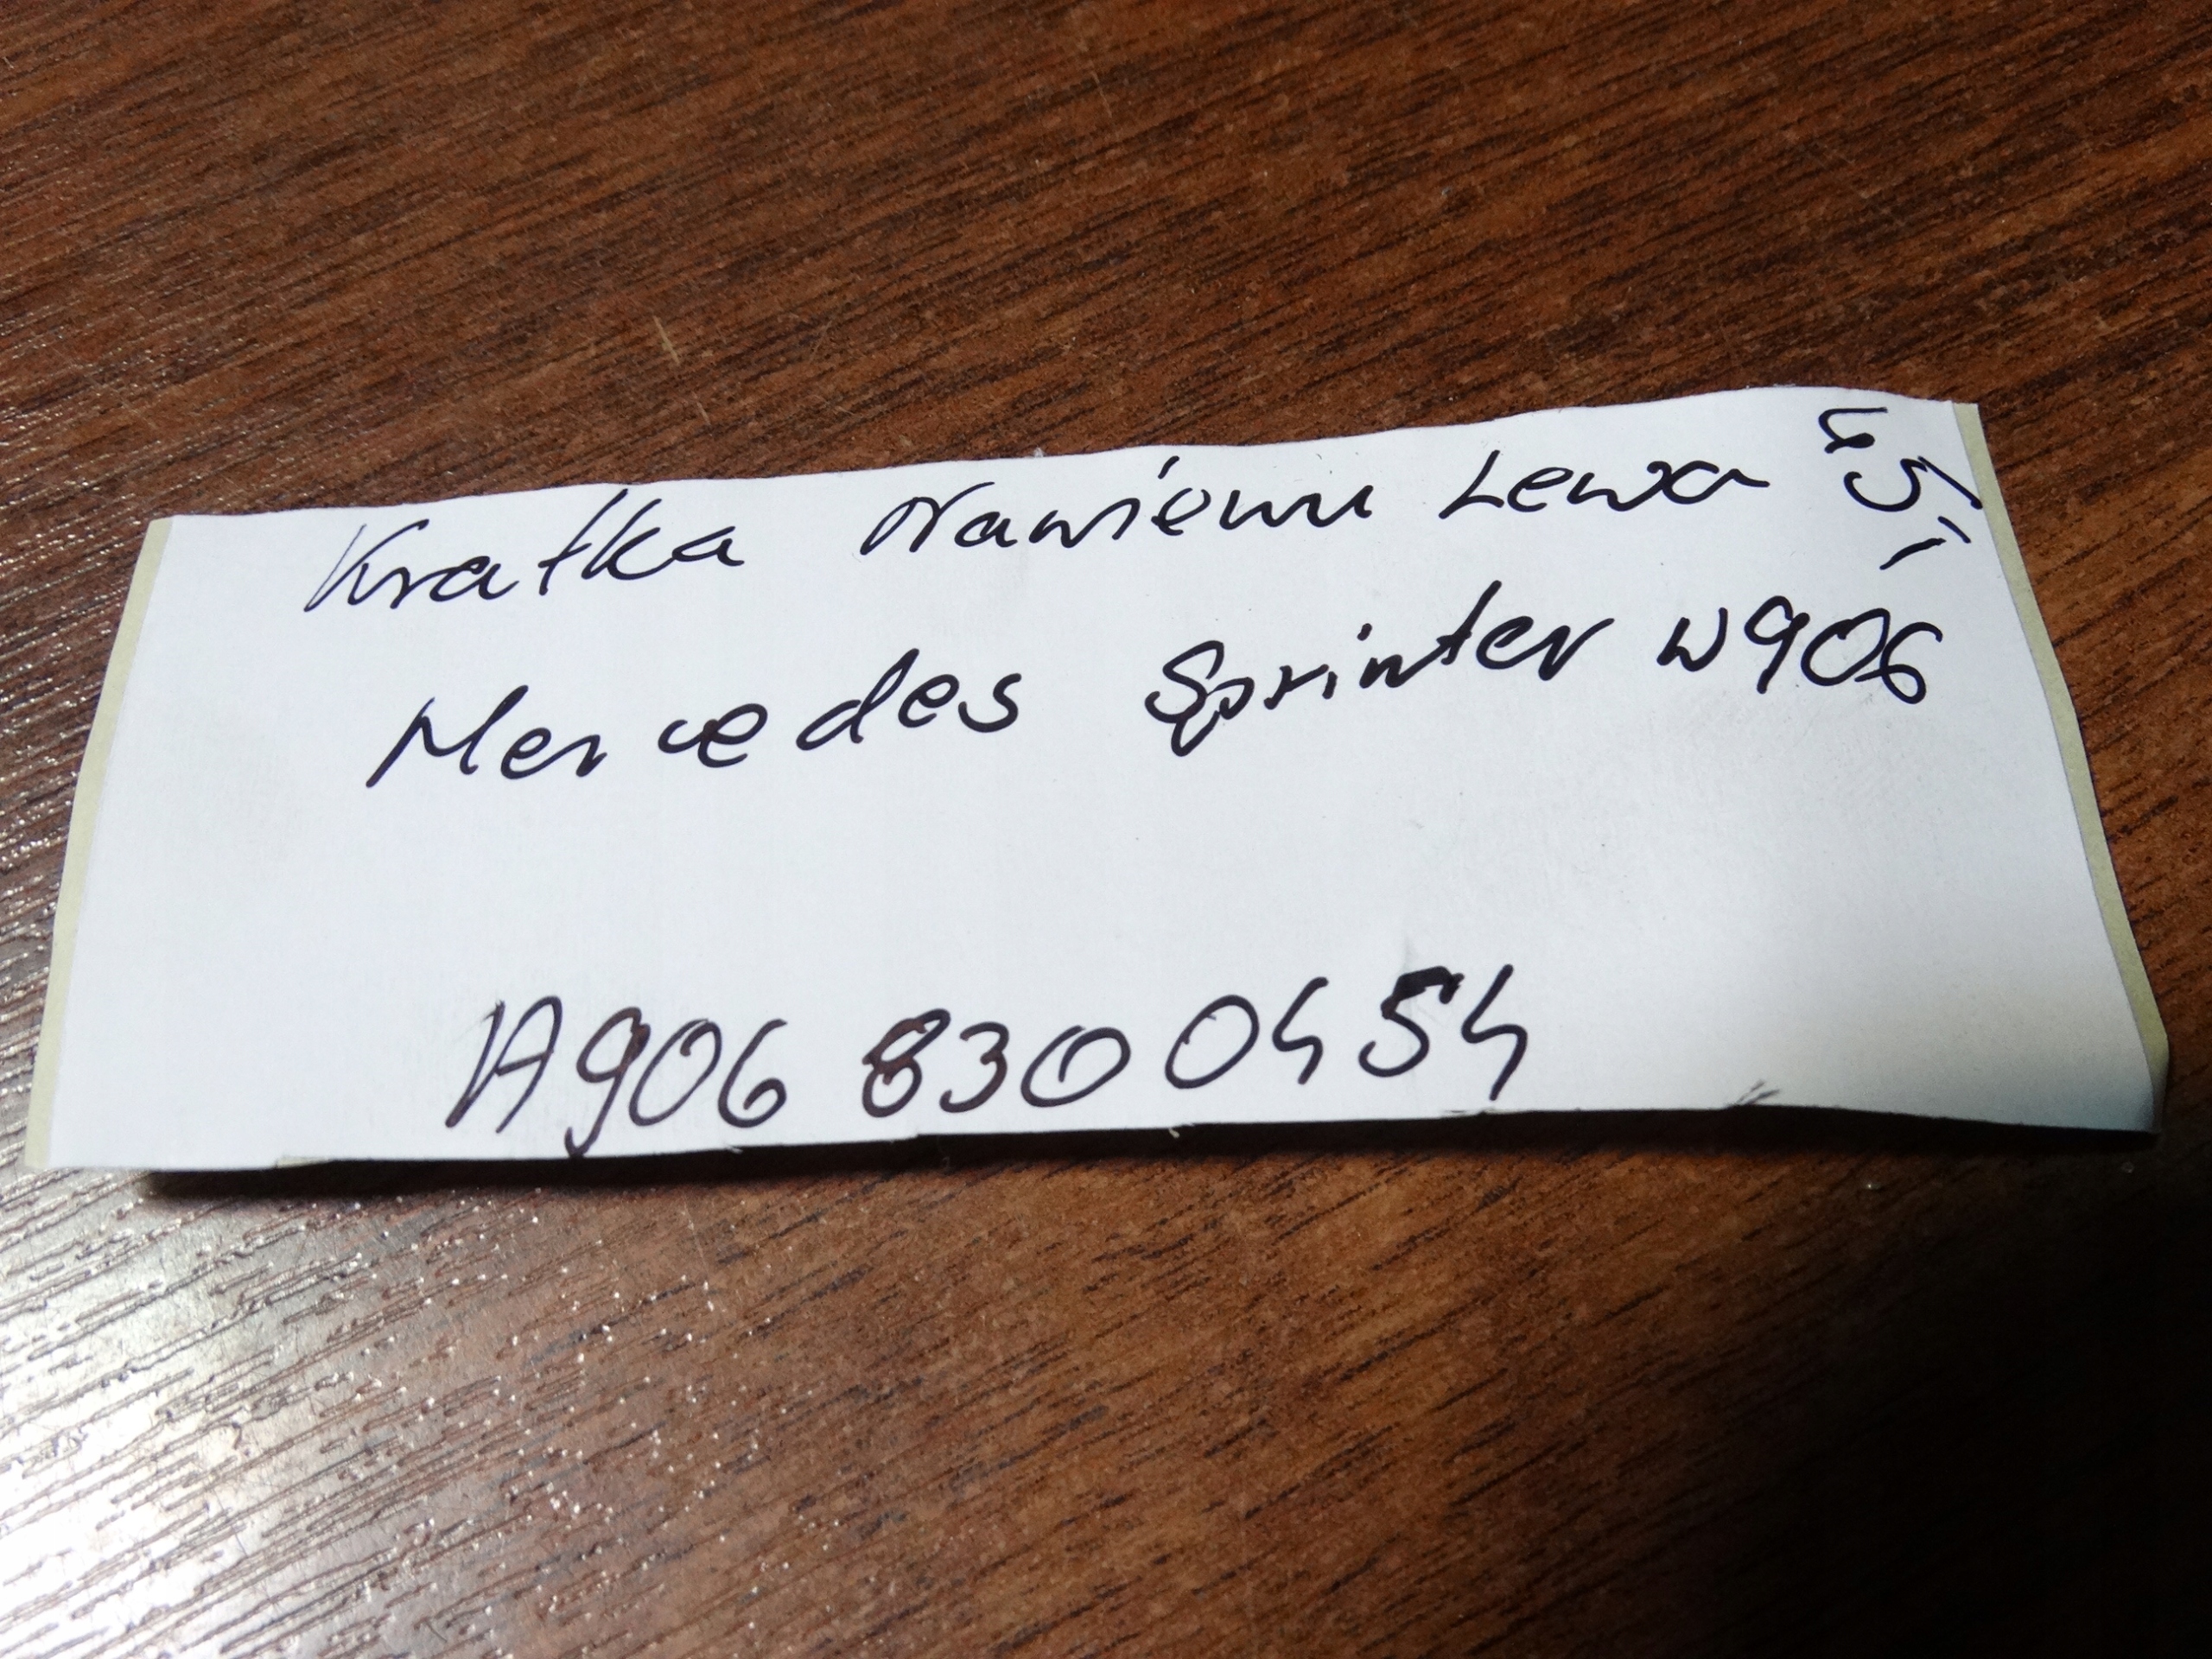 Kratka Nawiewu Lewa 45,-
Mercedes Sprinter W906
A906 830 0454